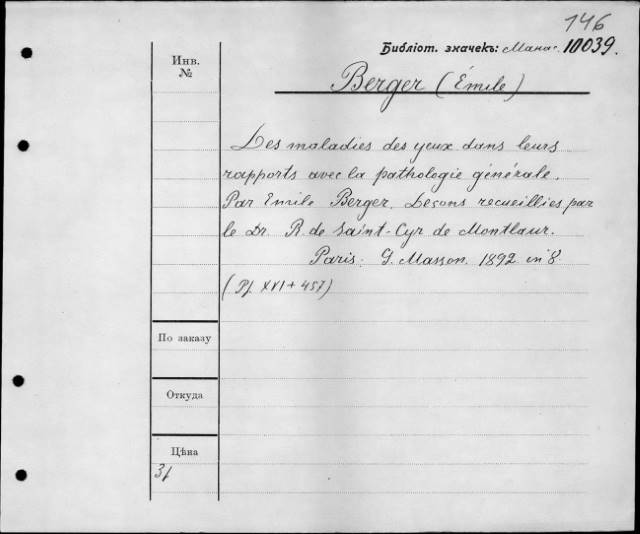 146
Библіот. значекъ: Манас. 10039.
Инв.
№
Berger (Émile)
Les maladies des yeux dans leurs
rapports avec la pathologie générale.
Par Emile Berger. Leçons recueillies par
le Dr. R. de Saint-Cyr de Montlaur.
Paris. G. Masson. 1892 in 8.
(Pf XVI + 457)
По заказу
Откуда
Цѣна
3f